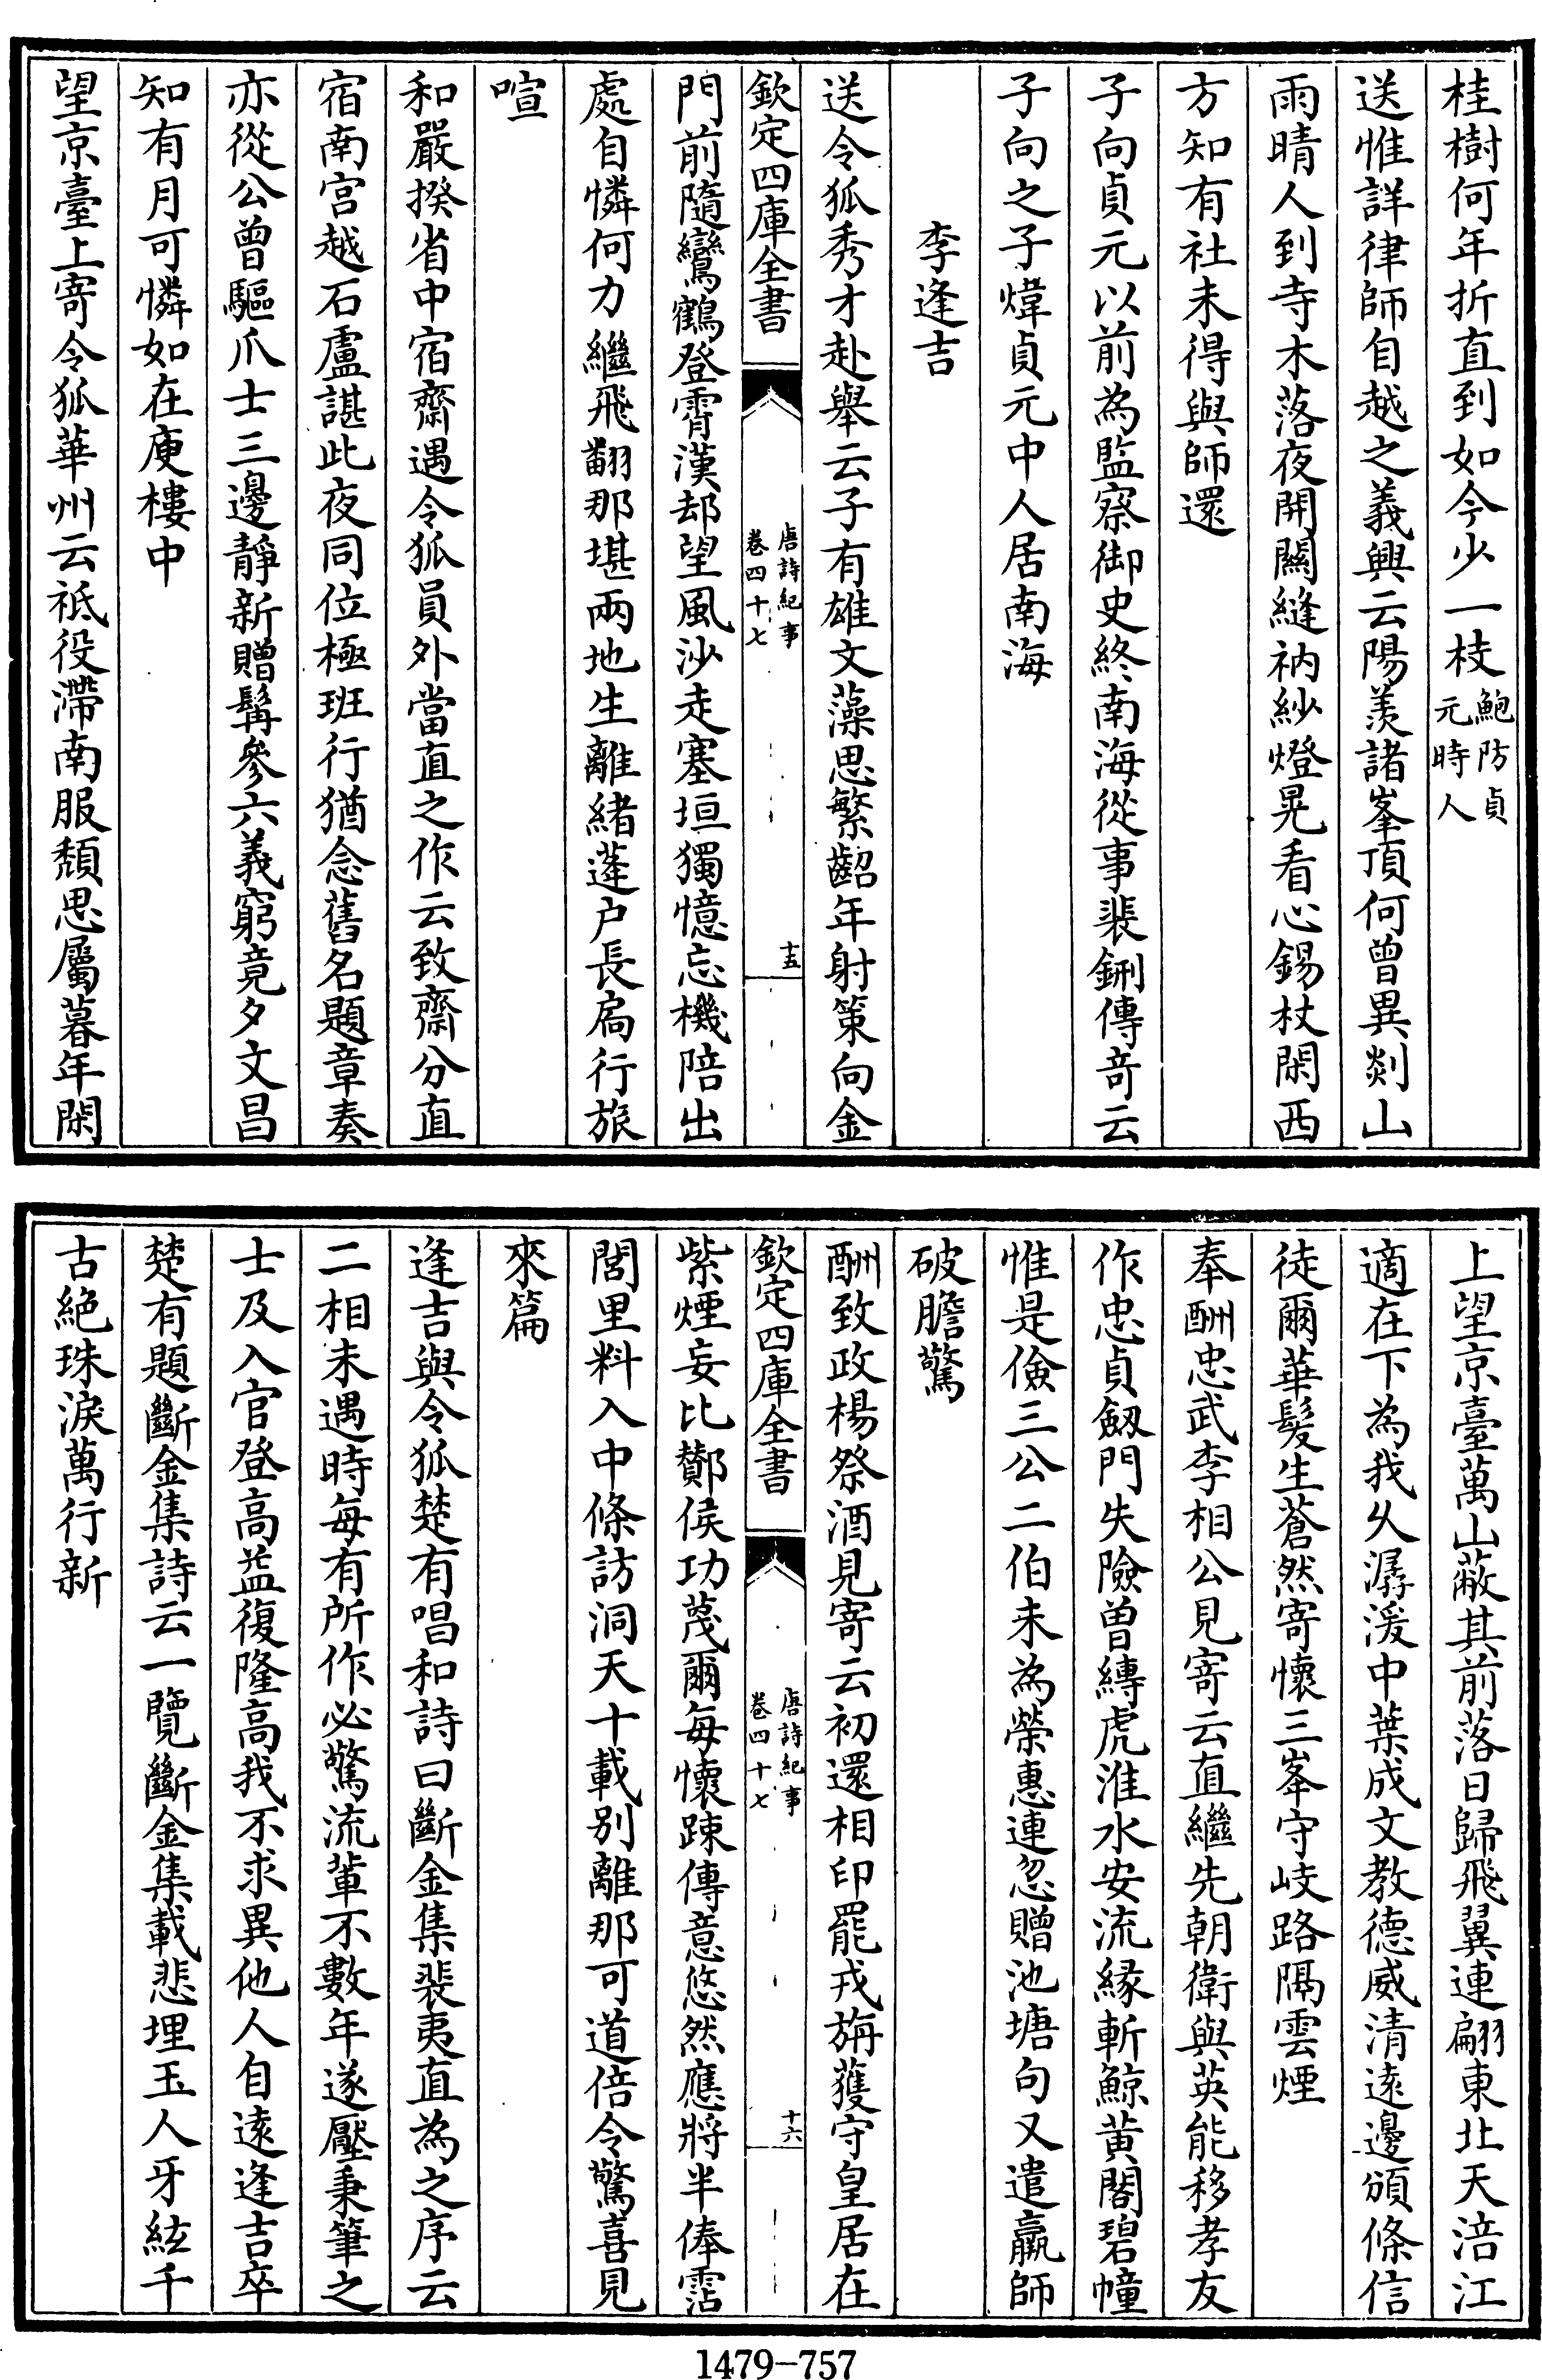 桂樹何年折直到如今少一枝鮑防貞元時人
送惟詳律師自越之義興云陽羨諸峯頂何曾異剡山
雨晴人到寺木落夜開關縫衲紗燈晃看心錫杖閑西
方知有社未得與師還
子向貞元以前為監察御史終南海從事裴鉶傳奇云
子向之子煒貞元中人居南海
李逢吉
送令狐秀才赴舉云子有雄文藻思繁齠年射策向金
欽定四庫全書
唐詩紀事
卷四十七
十五
門前隨鸞鶴登霄漢却望風沙走塞垣獨憶忘機陪出
處自憐何力繼飛翻那堪兩地生離緒蓬户長扃行旅
喧
和嚴揆省中宿齋遇令狐員外當直之作云致齋分直
宿南宫越石盧諶此夜同位極班行猶念舊名題章奏
亦從公曾驅爪士三邊靜新贈髯參六義窮竟夕文昌
知有月可憐如在庾樓中
望京臺上寄令狐華州云祗役滯南服頹思屬暮年閑
上望京臺萬山蔽其前落日歸飛翼連翩東北天涪江
適在下為我久潺湲中葉成文教德威清遠邊頒條信
徒爾華髮生蒼然寄懷三峯守岐路隔雲煙
奉酬忠武李相公見寄云直繼先朝衛與英能移孝友
作忠貞劔門失險曽縛虎淮水安流緣斬鯨黄閣碧幢
惟是儉三公二伯未為榮惠連忽贈池塘句又遣羸師
破膽驚
酬致政楊祭酒見寄云初還相印罷戎旃獲守皇居在
欽定四庫全書
唐詩紀事
卷四十七
十六
紫煙妄比酇侯功茂爾每懷踈傳意悠然應將半俸霑
閭里料入中條訪洞天十載别離那可道倍令驚喜見
來篇
逢吉與令狐楚有唱和詩曰斷金集裴夷直為之序云
二相未遇時每有所作必驚流輩不數年遂壓秉筆之
士及入官登高益復隆高我不求異他人自遠逢吉卒
楚有題斷金集詩云一覽斷金集載悲埋玉人牙絃千
古絶珠淚萬行新
1479-757